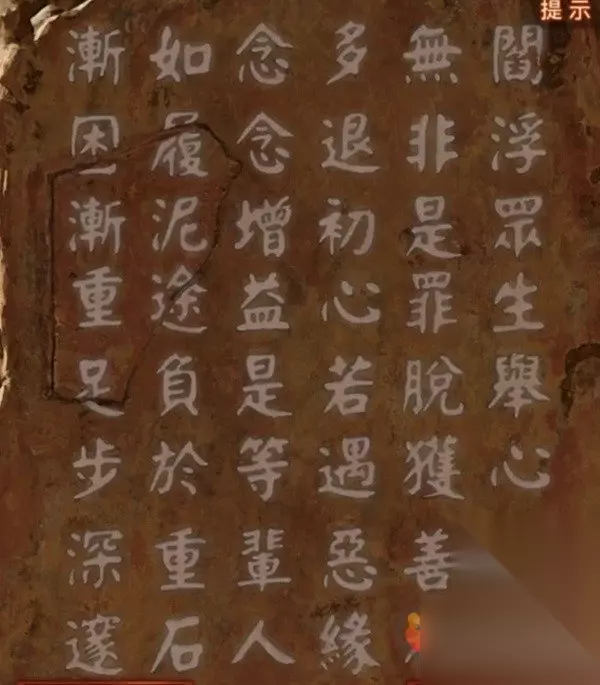 提示
閻浮眾生舉心
無非是罪脫獲善
多退初心若遇惡緣
念念增益是等輩人
如履泥途負於重石
漸困漸重足步深邃